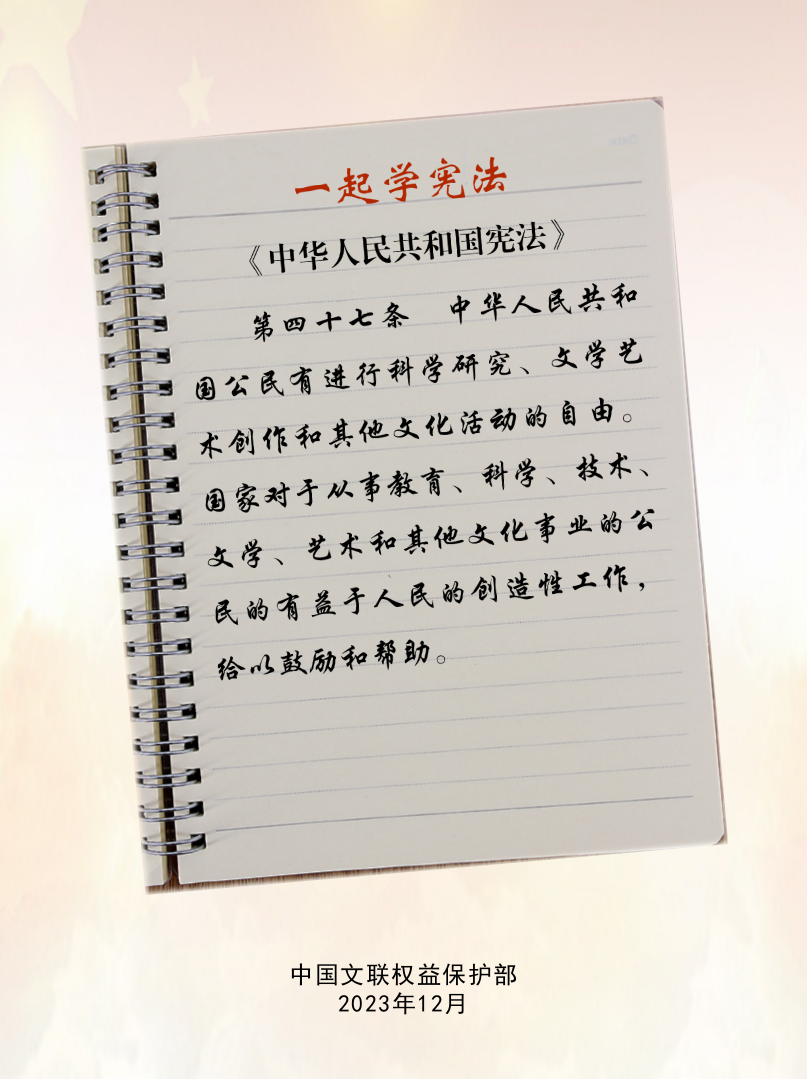 一起学宪法
《中华人民共和国宪法》
第四十七条 中华人民共和
国公民有进行科学研究、文学艺
术创作和其他文化活动的自由。
国家对于从事教育、科学、技术、
文学、艺术和其他文化事业的公
民的有益于人民的创造性工作，
给以鼓励和帮助。
中国文联权益保护部
2023年12月